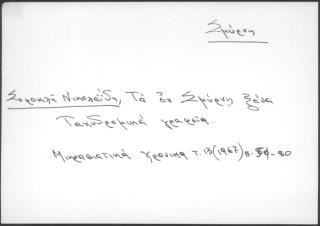 Σμύρνη
Σοφοκλῆ Νικολαΐδη, Τὰ ἐν Σμύρνῃ ξένα
Ταχυδρομικά γραφεῖα.
Μικρασιατικά Χρονικα τ. 13 (1967) σ. -80